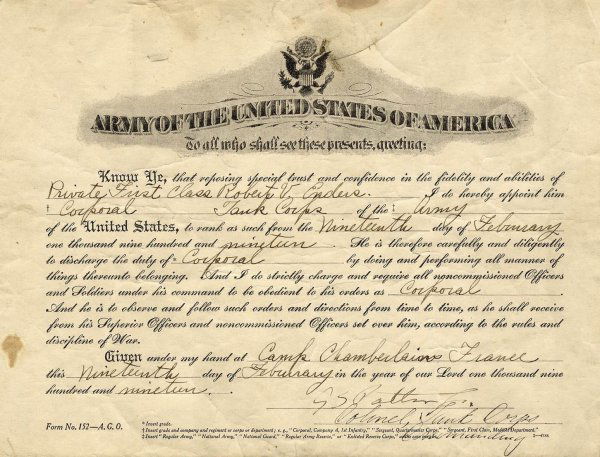 ARMY OF THE UNITED STATES OF AMERICA
To all who shall see these presents, greeting:
Know Ye, that reposing special trust and confidence in the fidelity and abilities of
Private First Class Robert V. Enders. I do hereby appoint him
† Corporal Tank Corps of the ‡ Army
of the United States, to rank as such from the Nineteenth day of Feburary
one thousand nine hundred and nineteen. He is therefore carefully and diligently
to discharge the duty of * Corporal by doing and performing all manner of
things thereunto belonging. And I do strictly charge and require all noncommissioned Officers
and Soldiers under his command to be obedient to his orders as Corporal.
And he is to observe and follow such orders and directions from time to time, as he shall receive
from his Superior Officers and noncommissioned Officers set over him, according to the rules and
discipline of War.
Given under my hand at Camp Chamberlain France
this Nineteenth day of Feburary in the year of our Lord one thousand nine
hundred and nineteen.
G S Patton Jr.
Colonel, Tank Corps
Commanding
Form No. 152—A. G. O.
* Insert grade.
† Insert grade and company and regiment or corps or department; e. g., "Corporal, Company A, 1st Infantry," "Sergeant, Quartermaster Corps," "Sergeant, First Class, Medical Department."
‡ Insert "Regular Army," "National Army," "National Guard," "Regular Army Reserve," or "Enlisted Reserve Corps,"